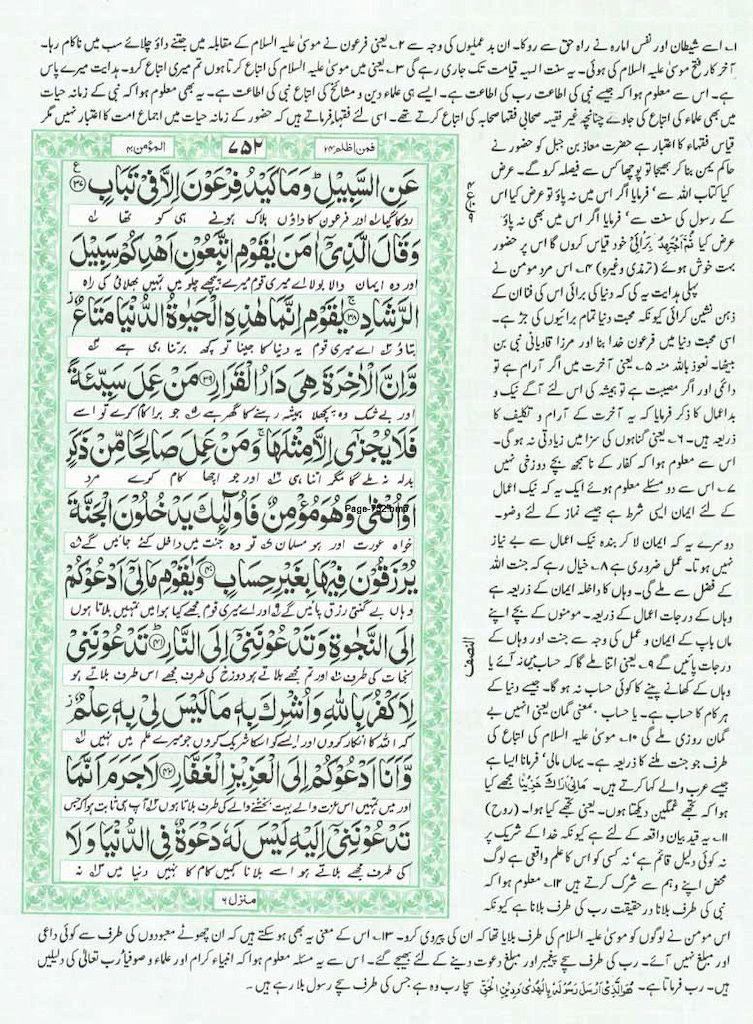 ۱۔ اسے شیطان اور نفس امارہ نے راہ حق سے روکا۔ ان بد عملیوں کی وجہ سے ۲۔ یعنی فرعون نے موسیٰ علیہ السلام کے مقابلہ میں جتنے داؤ چلائے سب میں ناکام رہا۔
آخر کار فتح موسیٰ علیہ السلام کی ہوئی۔ یہ سنت الہیہ قیامت تک جاری رہے گی ۳۔ یعنی میں موسیٰ علیہ السلام کی اتباع کرتا ہوں تم میری اتباع کرو۔ ہدایت میرے پاس
ہے۔ اس سے معلوم ہوا کہ جیسے نبی کی اطاعت رب کی اطاعت ہے۔ ایسے ہی علماء دین و مشائخ کی اتباع نبی کی اطاعت ہے۔ یہ بھی معلوم ہوا کہ نبی کے زمانہ حیات
میں بھی علماء کی اتباع کی جاوے چنانچہ غیر فقیہ صحابی فقہا صحابہ کی اتباع کرتے تھے۔ اسی لئے فقہاء فرماتے ہیں کہ حضور کے زمانہ حیات میں اجماع امت کا اعتبار نہیں مگر
فمن اظلم ۲۴
۷۵۲
المؤمن ۴۰
عَنِ السَّبِیْلِ ؕ وَمَا کَیْدُ فِرْعَوْنَ اِلَّا فِیْ تَبَابٍ ﴿۳۷﴾
روکا گیا اور فرعون کا داؤں ہلاک ہونے ہی کو تھا
وَقَالَ الَّذِیْۤ اٰمَنَ یٰقَوْمِ اتَّبِعُوْنِ اَهْدِکُمْ سَبِیْلَ
اور وہ ایمان والا بولا اے میری قوم میرے پیچھے چلو میں تمہیں بھلائی کی راہ
الرَّشَادِ ﴿۳۸﴾ یٰقَوْمِ اِنَّمَا هٰذِهِ الْحَیٰوةُ الدُّنْیَا مَتَاعٌ
بتاؤں اے میری قوم یہ دنیا کا جینا تو کچھ برتنا ہی ہے
وَّاِنَّ الْاٰخِرَةَ هِیَ دَارُ الْقَرَارِ ﴿۳۹﴾ مَنْ عَمِلَ سَیِّئَةً
اور بے شک وہ پچھلا ہمیشہ رہنے کا گھر ہے جو برا کام کرے تو اسے
فَلَا یُجْزٰۤی اِلَّا مِثْلَهَا ۚ وَمَنْ عَمِلَ صَالِحًا مِّنْ ذَکَرٍ
بدلہ نہ ملے گا مگر اتنا ہی اور جو اچھا کام کرے مرد
اَوْ اُنْثٰی وَهُوَ مُؤْمِنٌ فَاُولٰٓئِکَ یَدْخُلُوْنَ الْجَنَّةَ
Page-752.bmp
خواہ عورت اور ہو مسلمان تو وہ جنت میں داخل کئے جائیں گے
یُرْزَقُوْنَ فِیْهَا بِغَیْرِ حِسَابٍ ﴿۴۰﴾ وَیٰقَوْمِ مَا لِیْۤ اَدْعُوْکُمْ
وہاں بے گنتی رزق پائیں گے اور اے میری قوم مجھے کیا ہوا میں تمہیں بلاتا ہوں
اِلَی النَّجٰوةِ وَتَدْعُوْنَنِیْۤ اِلَی النَّارِ ﴿۴۱﴾ تَدْعُوْنَنِیْ
نجات کی طرف اور تم مجھے بلاتے ہو دوزخ کی طرف مجھے اس طرف بلاتے ہو
لِاَکْفُرَ بِاللّٰهِ وَاُشْرِکَ بِهٖ مَا لَیْسَ لِیْ بِهٖ عِلْمٌ
کہ اللہ کا انکار کروں اور ایسے کو اس کا شریک کروں جو میرے علم میں نہیں
وَّاَنَا اَدْعُوْکُمْ اِلَی الْعَزِیْزِ الْغَفَّارِ ﴿۴۲﴾ لَا جَرَمَ اَنَّمَا
اور میں تمہیں اس عزت والے بہت بخشنے والے کی طرف بلاتا ہوں آپ ہی ثابت ہوا کہ جس
تَدْعُوْنَنِیْۤ اِلَیْهِ لَیْسَ لَهٗ دَعْوَةٌ فِی الدُّنْیَا وَلَا
کی طرف مجھے بلاتے ہو اسے بلانا کہیں کام کا نہیں دنیا میں نہ
منزل ۶
النصف
قیاس فقہاء کا اعتبار ہے حضرت معاذ بن جبل کو حضور نے
حاکم یمن بنا کر بھیجا تو پوچھا کس سے فیصلہ کرو گے۔ عرض
کیا کتاب اللہ سے' فرمایا اگر اس میں نہ پاؤ تو عرض کیا اس
کے رسول کی سنت سے' فرمایا اگر اس میں بھی نہ پاؤ
عرض کیا ثُمَّ اَجْتَهِدُ بِرَائِیْ خود قیاس کروں گا اس پر حضور
بہت خوش ہوئے (ترمذی وغیرہ) ۴۔ اس مرد مومن نے
پہلی ہدایت یہ کی کہ دنیا کی برائی اس کی فنا ان کے
ذہن نشین کرائی کیونکہ محبت دنیا تمام برائیوں کی جڑ ہے۔
اسی محبت دنیا میں فرعون خدا بنا اور مرزا قادیانی نبی بن
بیٹھا۔ نعوذ باللہ منہ ۵۔ یعنی آخرت میں اگر آرام ہے تو
دائمی اور اگر مصیبت ہے تو ہمیشہ کی اس لئے آگے نیک و
بد اعمال کا ذکر فرمایا کہ یہ آخرت کے آرام و تکلیف کا
ذریعہ ہیں۔ ۶۔ یعنی گناہوں کی سزا میں زیادتی نہ ہو گی۔
اس سے معلوم ہوا کہ کفار کے ناسمجھ بچے دوزخی نہیں
۷۔ اس سے دو مسئلے معلوم ہوئے ایک یہ کہ نیک اعمال
کے لئے ایمان ایسی شرط ہے جیسے نماز کے لئے وضو۔
دوسرے یہ کہ ایمان لا کر بندہ نیک اعمال سے بے نیاز
نہیں ہوتا۔ عمل ضروری ہے ۸۔ خیال رہے کہ جنت اللہ
کے فضل سے ملے گی۔ وہاں کا داخلہ ایمان کے ذریعہ ہے
وہاں کے درجات اعمال کے ذریعہ۔ مومنوں کے بچے اپنے
ماں باپ کے ایمان و عمل کی وجہ سے جنت اور وہاں کے
درجات پائیں گے ۹۔ یعنی اتنا ملے گا کہ حساب میں نہ آئے یا
وہاں کے کھانے پینے کا کوئی حساب نہ ہو گا۔ جیسے دنیا کے
ہر کام کا حساب ہے۔ یا حساب بمعنی گمان یعنی انہیں بے
گمان روزی ملے گی ۱۰۔ موسیٰ علیہ السلام کی اتباع کی
طرف جو جنت ملنے کا ذریعہ ہے۔ یہاں مالی' فرمانا ایسا ہے
جیسے عرب والے کہا کرتے ہیں۔ مَالِیْ اَرَاكَ حَزِیْنًا مجھے کیا
ہوا کہ تجھے غمگین دیکھتا ہوں۔ یعنی تجھے کیا ہوا۔ (روح)
۱۱۔ یہ قید بیان واقعہ کے لئے ہے کیونکہ خدا کے شریک پر
نہ کوئی دلیل قائم ہے' نہ کسی کو اس کا علم واقعی ہے لوگ
محض اپنے وہم سے شرک کرتے ہیں ۱۲۔ معلوم ہوا کہ
نبی کی طرف بلانا در حقیقت رب کی طرف بلانا ہے کیونکہ
اس مومن نے لوگوں کو موسیٰ علیہ السلام کی طرف بلایا تھا کہ ان کی پیروی کرو۔ ۱۳۔ اس کے معنی یہ بھی ہو سکتے ہیں کہ ان جھوٹے معبودوں کی طرف سے کوئی داعی
اور مبلغ نہیں آئے۔ رب کی طرف سے پیغمبر اور مبلغ دعوت دینے کے لئے بھیجے گئے۔ اس سے یہ مسئلہ معلوم ہوا کہ انبیاء کرام اور علماء و صوفیا رب تعالیٰ کی دلیلیں
ہیں۔ رب فرماتا ہے۔ هُوَ الَّذِیْ اَرْسَلَ رَسُوْلَهٗ بِالْهُدٰی وَدِیْنِ الْحَقِّ سچا رب وہ ہے جس کی طرف سچے رسول بلا رہے ہیں۔